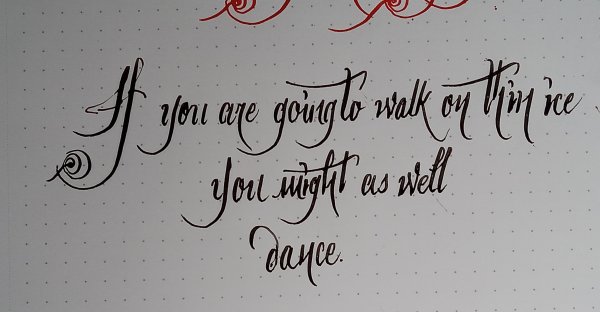 If you are going to walk on thin ice
you might as well
dance.